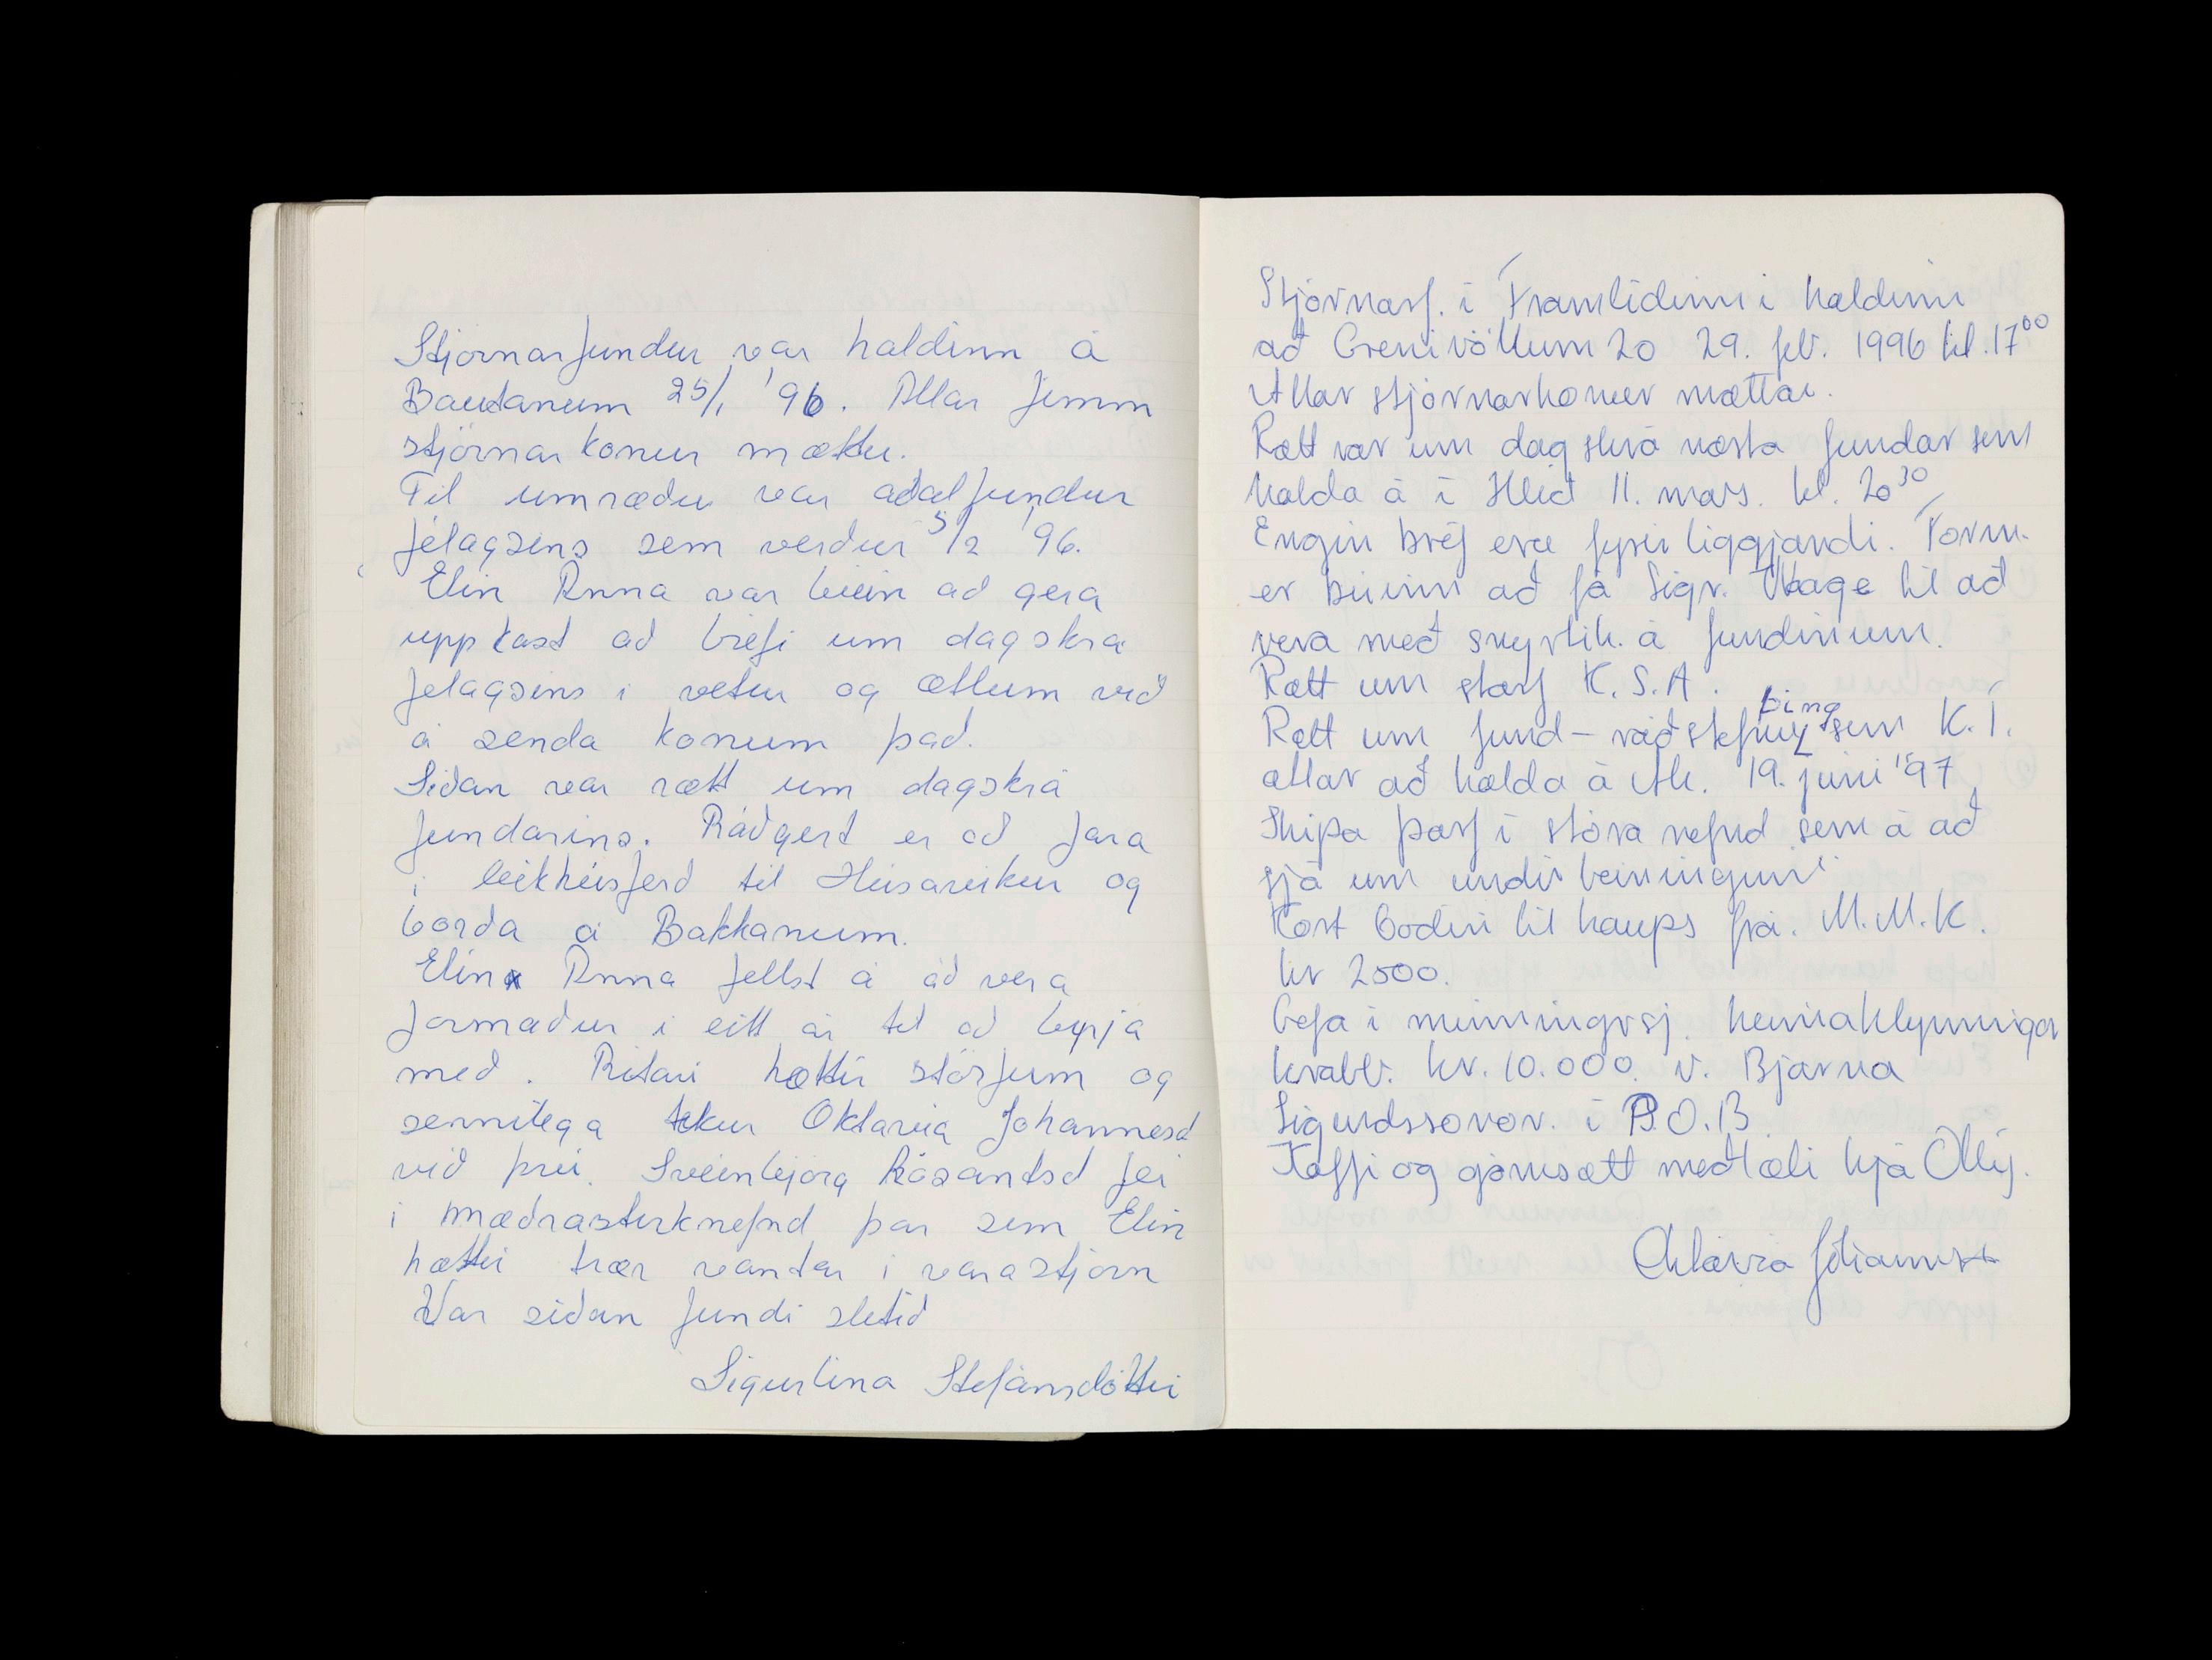 Stjórnarfundur var haldinn á
Bautanum 25/1 '96. Allar fimm
stjórnarkonur mættu.
Til umræðu var aðalfundur
félagsins sem verður 5/2 '96.
Elin Anna var búin að gera
uppkast að bréfi um dagskrá
félagsins i vetur og ætlum við
á senda konum það.
Síðan var rætt um dagskrá
fundarins. Ráðgert er að fara
i leikhúsferð til Húsavikur og
borða á Bakkanum.
Elin Anna fellst á að vera
formaður i eitt ár til að byrja
með. Ritari hættir störfum og
sennilega tekur Oktavia Jóhannesd
við þvi. Sveinbjörg Rósantsd fer
i mæðrastyrknefnd þar sem Elin
hættir tvær vantar i varastjórn
Var síðan fundi slitið
Sigurlina Stefánsdóttir
Stjórnarf. i Framtíðinni haldinn
að Grenivöllum 20 29. feb. 1996 kl. 17⁰⁰
Allar stjórnarkonur mættar.
Rætt var um dagskrá næsta fundar sem
halda á í Hlíð 11. mars. kl. 20³⁰
Engin bréf eru fyrir liggjandi. Form.
er búinn að fá Sigr. Waage til að
vera með snyrtik. á fundinum.
Rætt um starf K.S.A.
Rætt um fund - ráðstefnu þing sem K.Í.
ætlar að halda á Ak. 19. júni '97
Skipa þarf í stóra nefnd sem á að
sjá um undirbúninginn
Kort boðin til kaups frá. M.M.K.
kr 2500.
Gefa i minningarsj. heimahlynningar
krabb. kr. 10.000. v. Bjarna
Sigurdssonar. í P.O.B
Kaffi og gómsætt meðlæti hjá Ollý.
Oktavía Jóhannesd